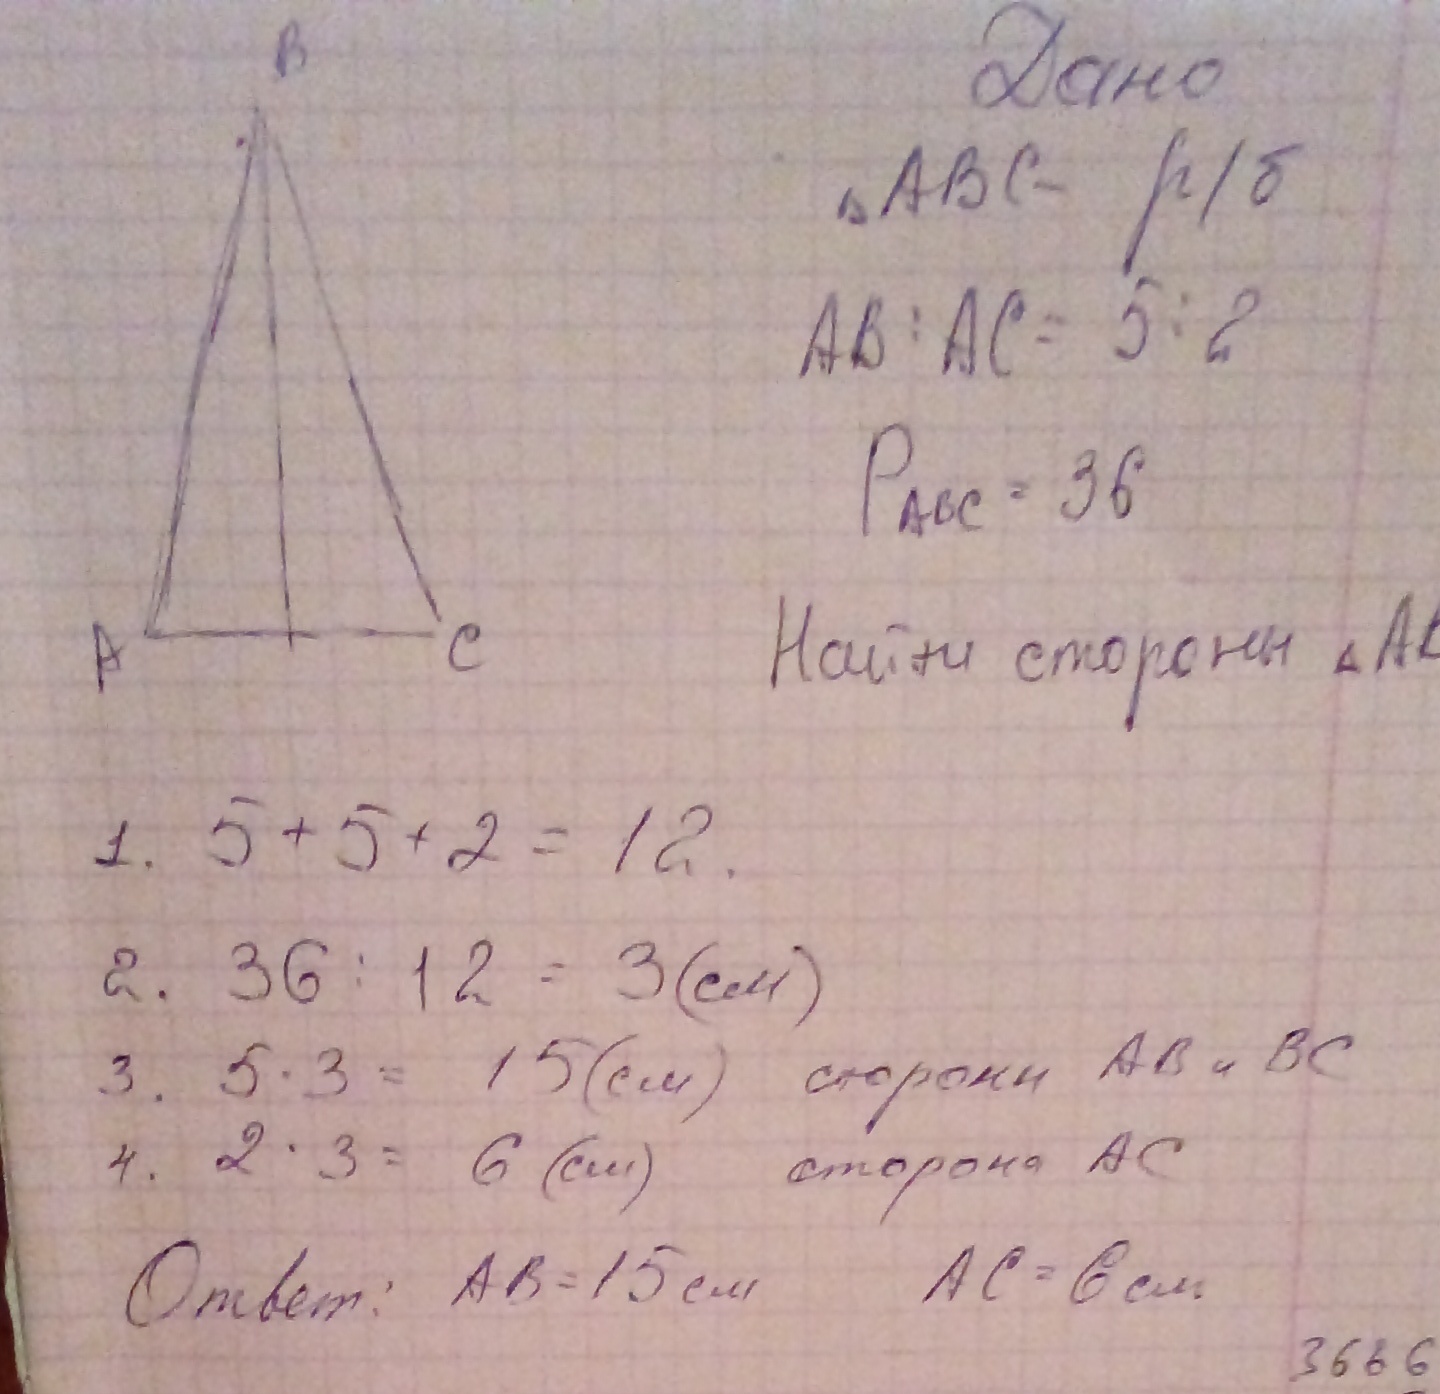 B
Дано
△ABC- р/б
AB:AC= 5:2
A
C
PABC = 36
Найти стороны △AB
1. 5+5+2= 12.
2. 36:12 = 3(см)
3. 5·3= 15(см) стороны AB и BC
4. 2·3= 6(см) сторона AC
Ответ: AB=15см AC=6см
3666